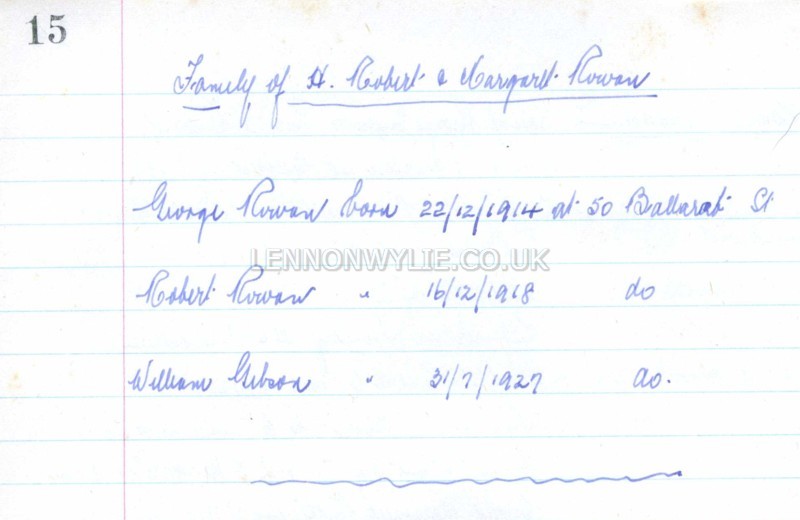 15
Family of H. Robert & Margaret Rowan
George Rowan born 22/12/1914 at 50 Ballarat St
LENNONWYLIE.CO.UK
Robert Rowan " 16/12/1918 do
William Gibson " 31/7/1927 do.